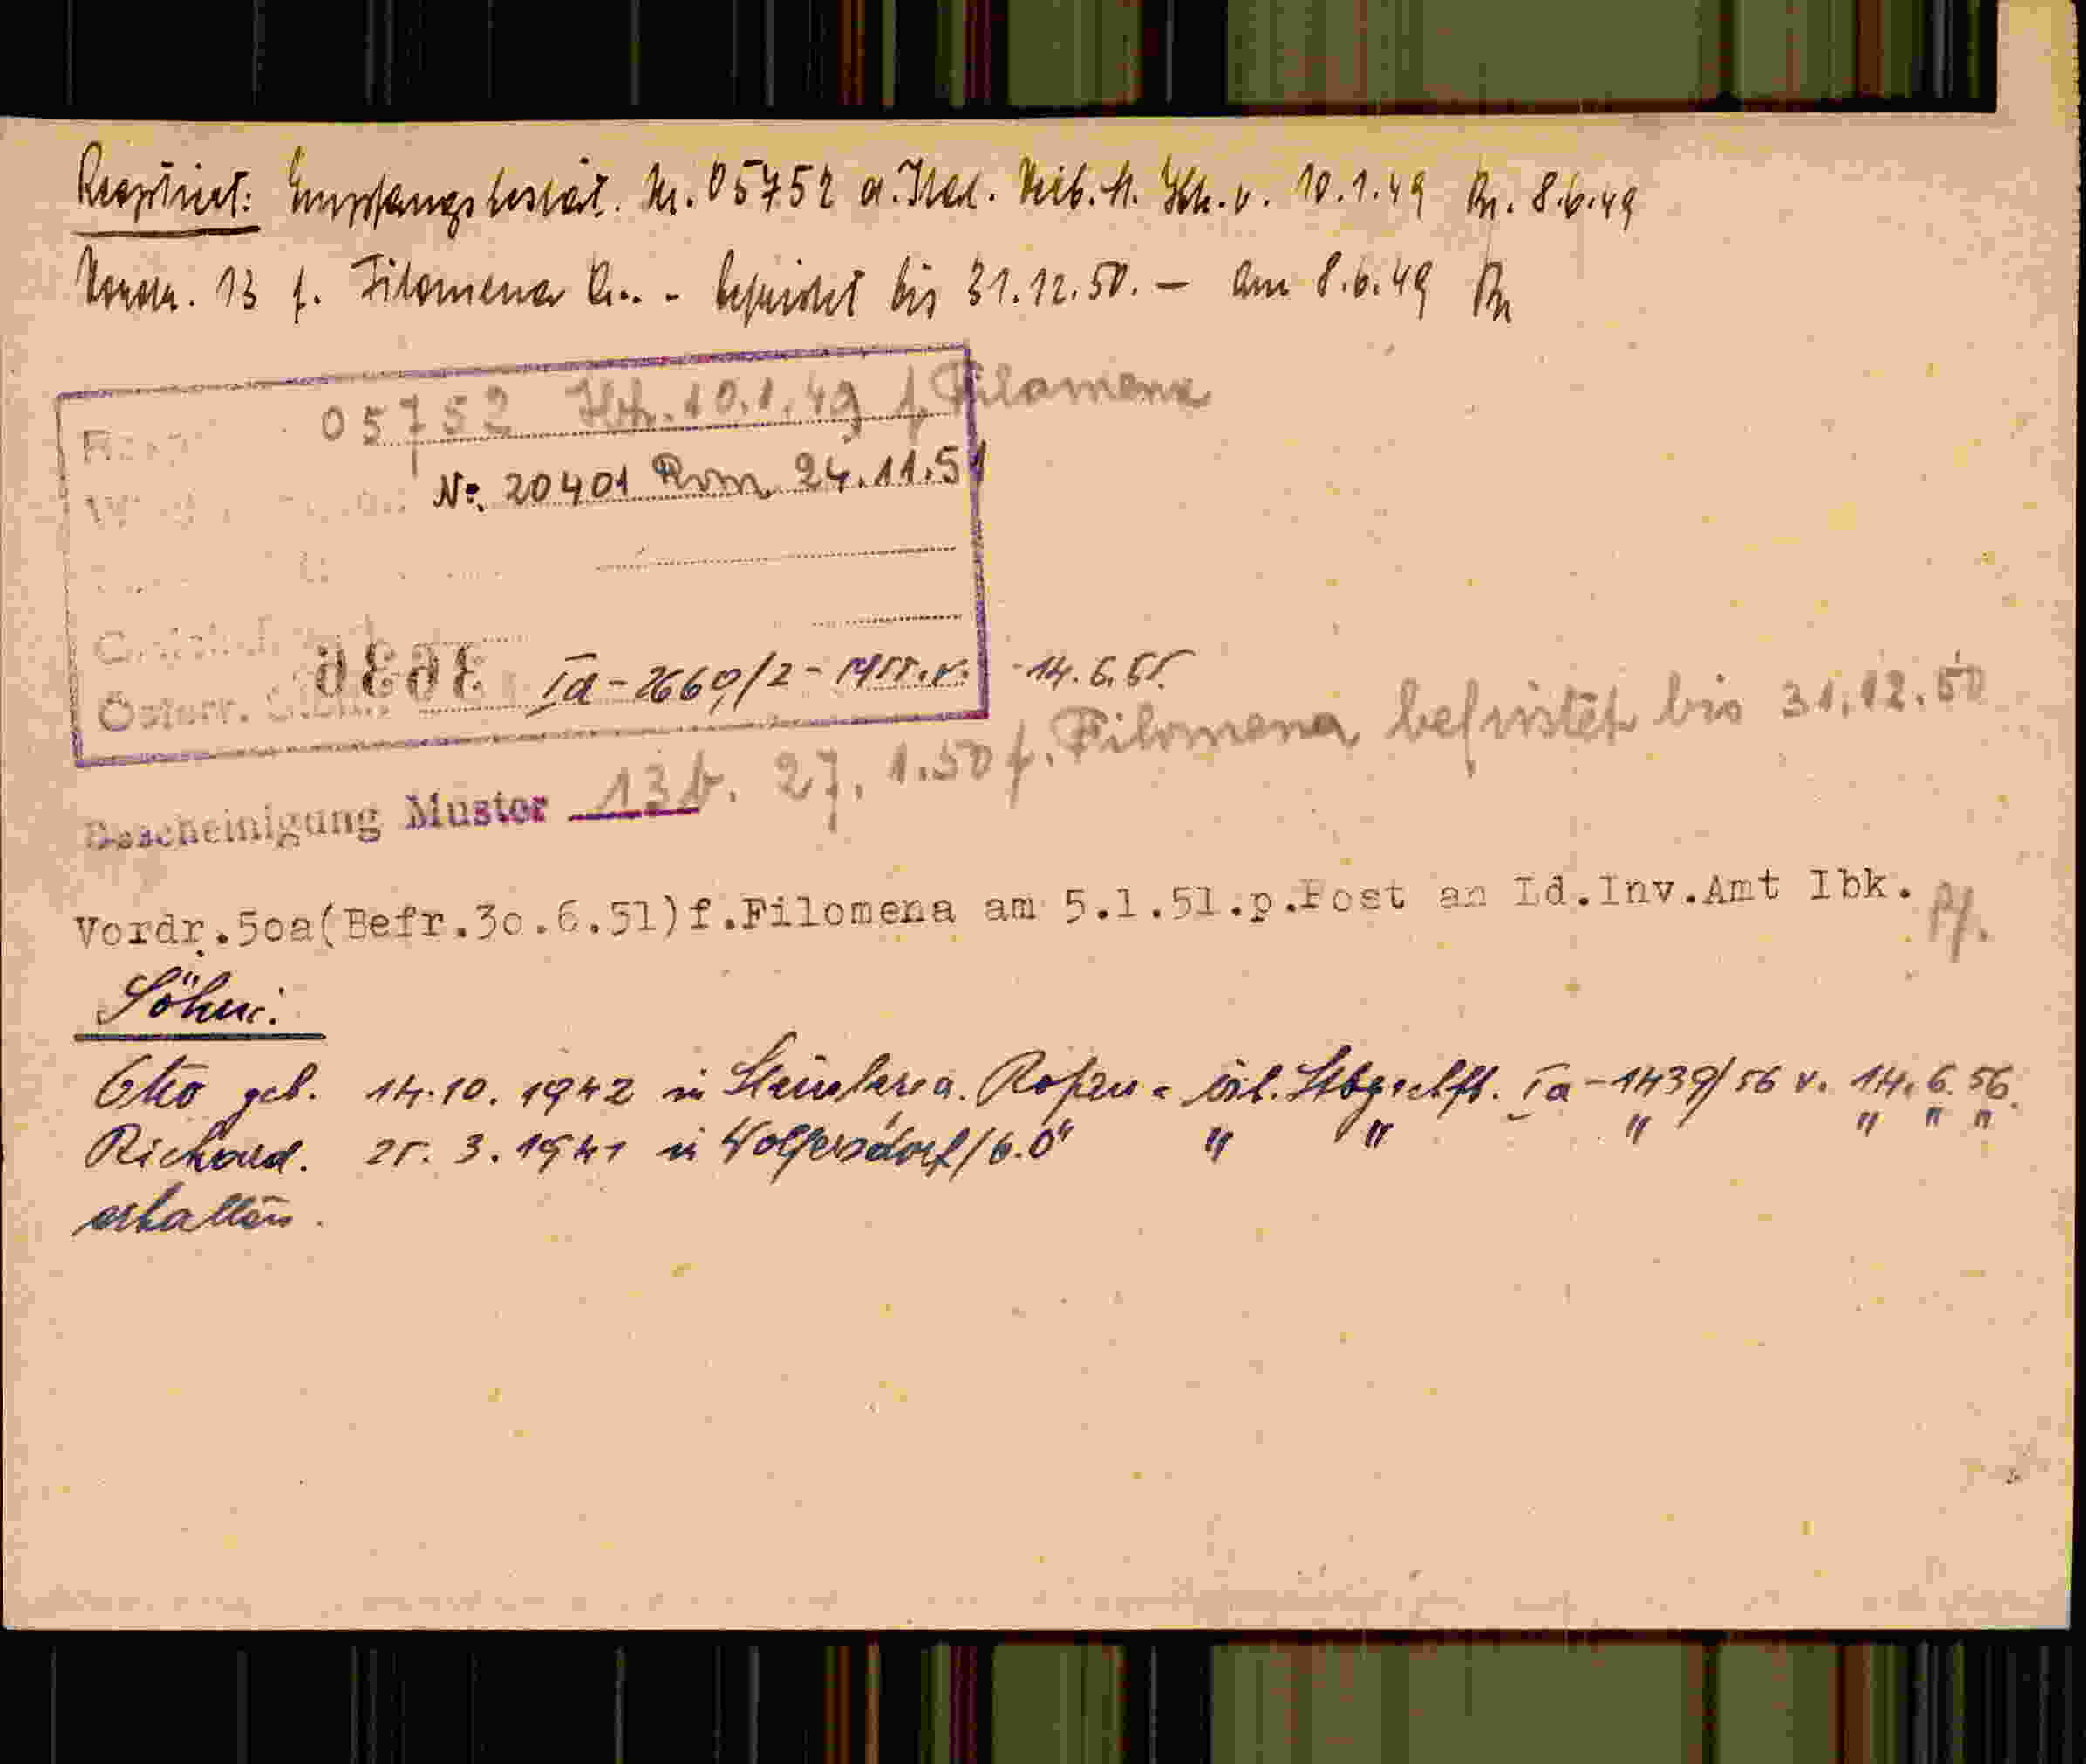 Reoptiert: Empfangsbestät. Nr. 05752 d. Ital. Verb. St. Ibk. v. 10.1.49 Pr. 8.6.49
Vordr. 13 f. Filomena - befristet bis 31.12.50. — am 8.6.49 Pr
05752 Ibk. 10.1.49 f. Filomena
No. 20401 Rom 24.11.51
Österr. Ia-2660/2-1955 v. 14.6.55.
Bescheinigung Muster 13 b. 27.1.50 f. Filomena befristet bis 31.12.50
Vordr.5oa(Befr.3o.6.51)f.Filomena am 5.1.51.p.Post an Ld.Inv.Amt Ibk.
Söhne:
Otto geb. 14.10.1942 in öst. Stbgschft. Ia-1439/56 v. 14.6.56.
Richard. 25.3.1941 in Wolfersdorf " " " " " "
erhalten.